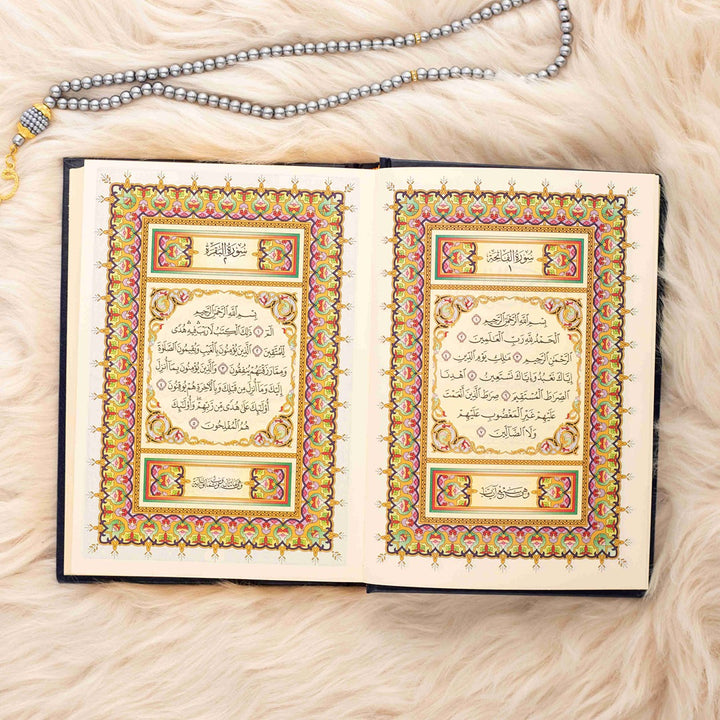 سُورَةُ الفَاتِحَةِ
١
بِسْمِ اللَّهِ الرَّحْمَنِ الرَّحِيمِ ١
الْحَمْدُ لِلَّهِ رَبِّ الْعَالَمِينَ
٢ الرَّحْمَنِ الرَّحِيمِ ٣ مَالِكِ يَوْمِ الدِّينِ ٤
إِيَّاكَ نَعْبُدُ وَإِيَّاكَ نَسْتَعِينُ ٥ اهْدِنَا
الصِّرَاطَ الْمُسْتَقِيمَ ٦ صِرَاطَ الَّذِينَ أَنْعَمْتَ
عَلَيْهِمْ غَيْرِ الْمَغْضُوبِ عَلَيْهِمْ
وَلَا الضَّالِّينَ ٧
وهي سبع آيات
سُورَةُ البَقَرَةِ
٢
بِسْمِ اللَّهِ الرَّحْمَنِ الرَّحِيمِ
الم ١ ذَلِكَ الْكِتَابُ لَا رَيْبَ فِيهِ هُدًى
لِلْمُتَّقِينَ ٢ الَّذِينَ يُؤْمِنُونَ بِالْغَيْبِ وَيُقِيمُونَ الصَّلَاةَ
وَمِمَّا رَزَقْنَاهُمْ يُنْفِقُونَ ٣ وَالَّذِينَ يُؤْمِنُونَ بِمَا أُنْزِلَ
إِلَيْكَ وَمَا أُنْزِلَ مِنْ قَبْلِكَ وَبِالْآخِرَةِ هُمْ يُوقِنُونَ ٤
أُولَئِكَ عَلَى هُدًى مِنْ رَبِّهِمْ وَأُولَئِكَ
هُمُ الْمُفْلِحُونَ ٥